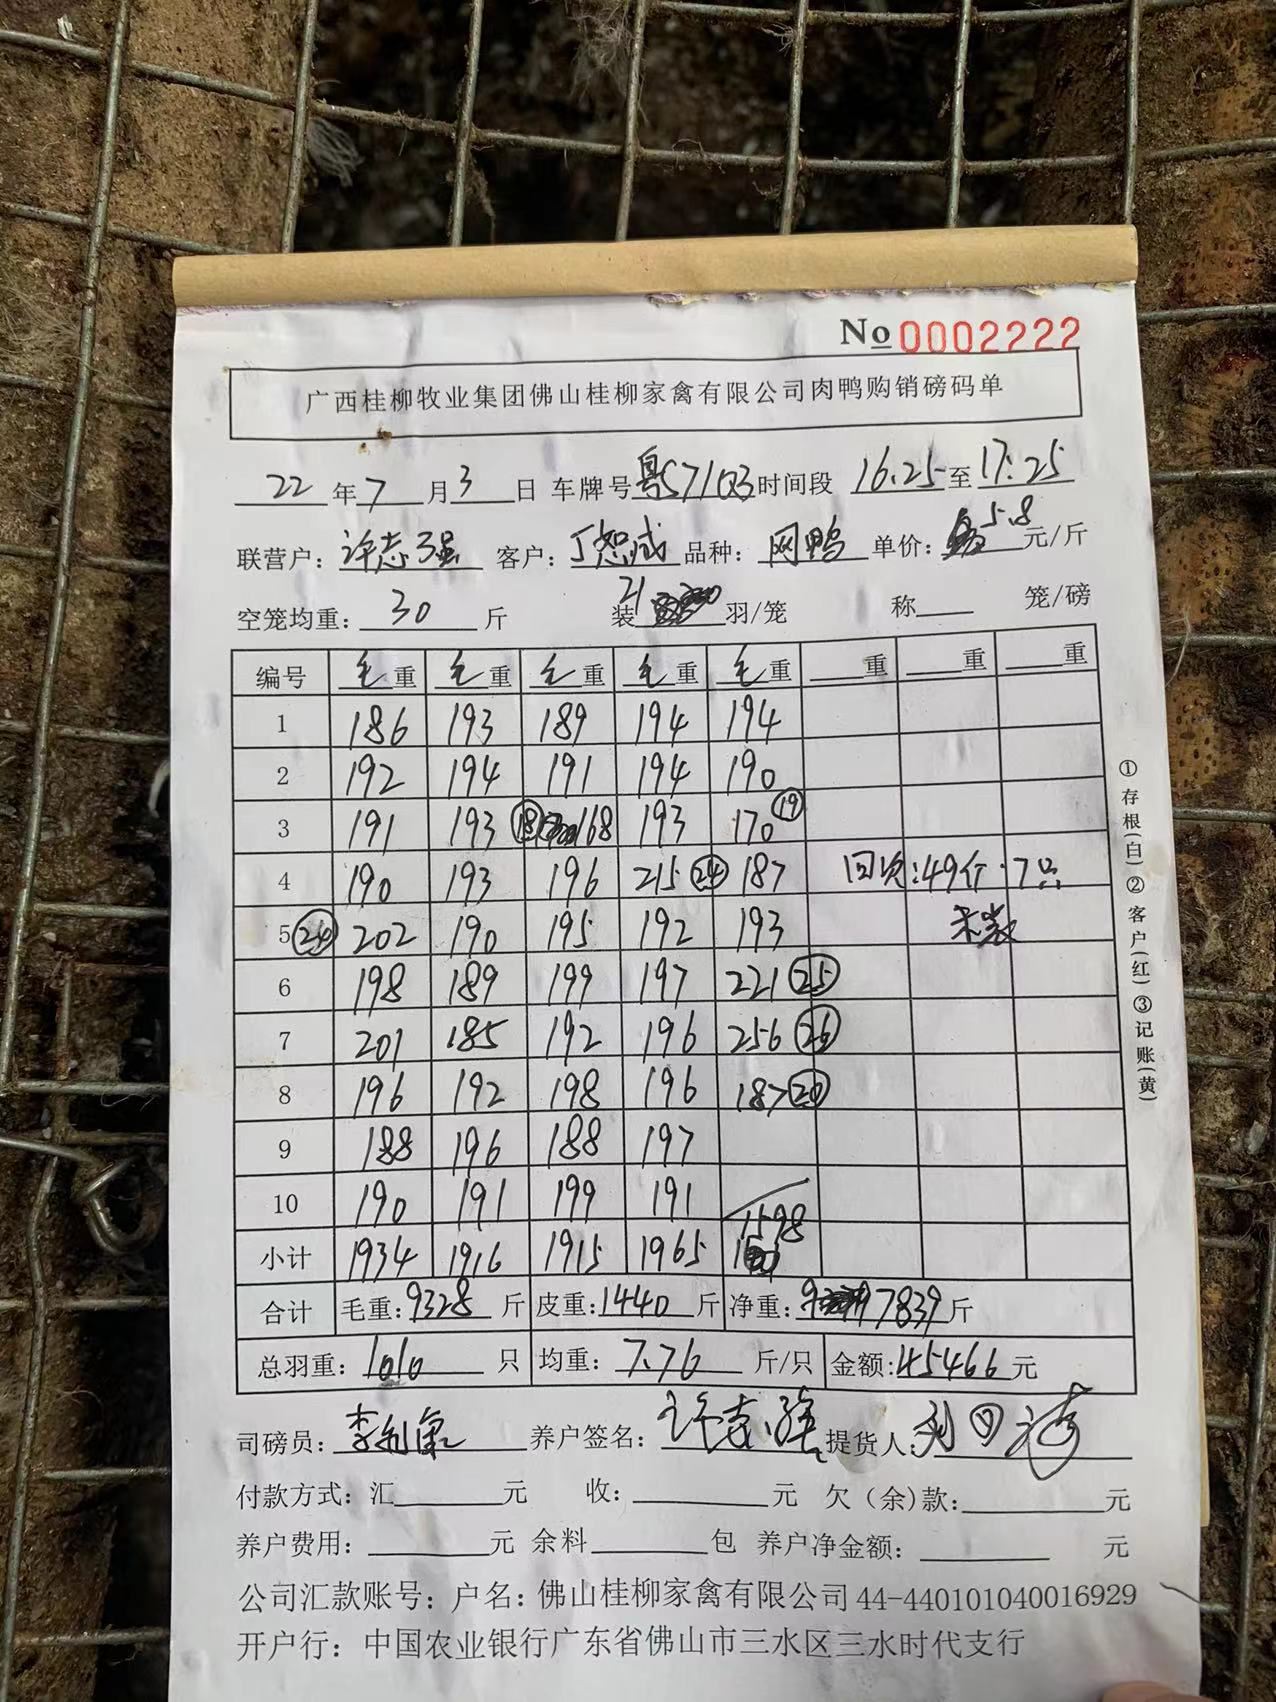 No 0002222
广西桂柳牧业集团佛山桂柳家禽有限公司肉鸭购销磅码单
22 年 7 月 3 日 车牌号 粤S71Q3 时间段 16.25 至 17:25
联营户： 许志强 客户： 丁恕成 品种： 网鸭 单价： 5.8 元/斤
空笼均重： 30 斤 21 装 羽/笼 称 笼/磅
编号 毛重 毛重 毛重 毛重 毛重 重 重 重
1 186 193 189 194 194
2 192 194 191 194 190
3 191 193 18 168 193 170 19
4 190 193 196 215 24 187 :49斤 7只
5 20 202 190 195 192 193 未装
6 198 189 199 197 221 25
7 201 185 192 196 256 26
8 196 192 198 196 187 20
9 188 196 188 197
10 190 191 199 191
1598
小计 1934 1916 1915 1965
合计 毛重: 9328 斤 皮重: 1440 斤 净重: 7839 斤
总羽重: 1010 只 均重: 7.76 斤/只 金额: 45466 元
司磅员： 养户签名： 许志强 提货人:
付款方式：汇 元 收： 元 欠（余）款： 元
养户费用： 元 余料 包 养户净金额： 元
公司汇款账号：户名：佛山桂柳家禽有限公司 44-440101040016929
开户行：中国农业银行广东省佛山市三水区三水时代支行
①存根(白)②客户(红)③记账(黄)